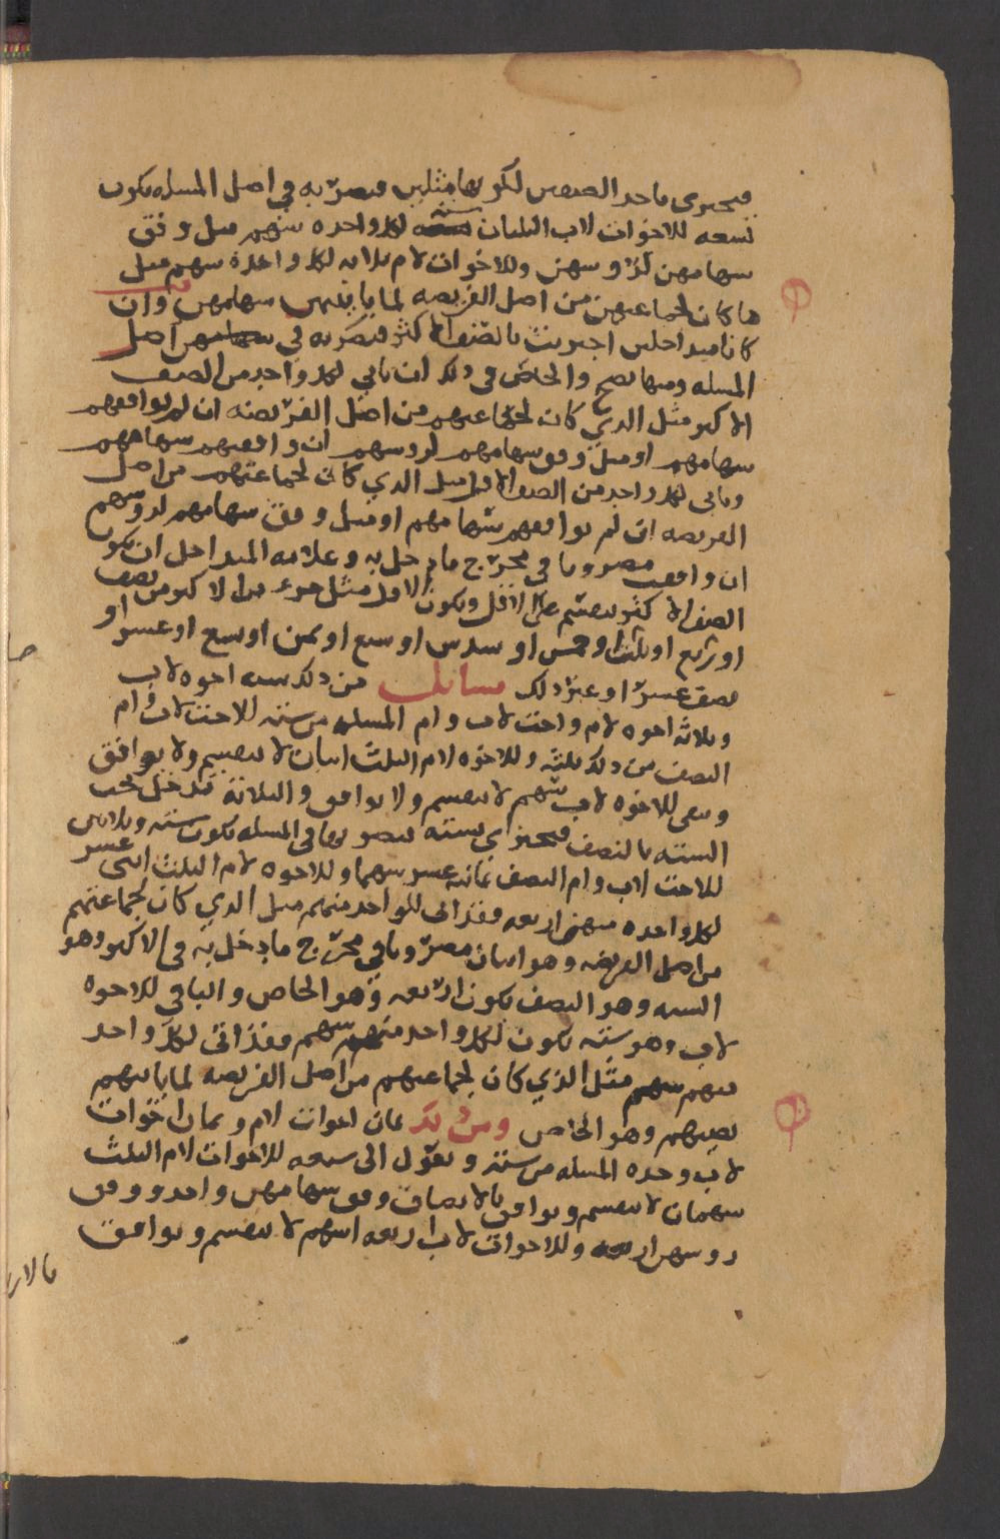 فيجتزى باحد الصنفين لكونهما مثلين فتضربه في اصل المسله يكون
تسعه للاخوات لاب الثلثان سته لكل واحده منهن مثل وفق
سهامهن لرؤوسهن وللاخوات لام ثلاثه لكل واحده سهم مثل
ما كان لجماعتهن من اصل الفريضه لما باينهن سهامهن وان
كانا متداخلين اجتزيت بالصنف الاكثر فتضربه في اصل
المسله ومنها تصح والخاص في ذلك ان ياتي لكل واحد من الصنف
الاكبر مثل الذي كان لجماعتهم من اصل الفريضه ان لم توافقهم
سهامهم او مثل وفق سهامهم لروسهم ان وافقتهم سهامهم
وياتي لكل واحد من الصنف الاقل مثل الذي كان لجماعتهم من اصل
الفريضه ان لم توافقهم سهامهم او مثل وفق سهامهم لروسهم
ان وافقت مضروبا في مخرج ما دخل به وعلامه المتداخل ان يكون
الصنف الاكثر ينقسم على الاقل ويكون الاقل مثل جزء من الاكبر من نصف
او ربع او ثلث او خمس او سدس او سبع او ثمن او تسع او عشر او
نصف عشر او غير ذلك مسائل من ذلك سته اخوه لاب
وثلاثه اخوه لام واخت لاب وام المسله من سته للاخت لاب وام
النصف من ذلك ثلثه وللاخوه لام الثلث اثنان لا ينقسم ولا يوافق
وبقي للاخوه لاب سهم لا ينقسم ولا يوافق والثلاثة تدخل تحت
السته بالنصف فيجتزى بسته تضربها في المسله يكون سته وثلاثين
للاخت لاب وام النصف ثمانيه عشر سهما وللاخوه لام الثلث اثنى عشر
لكل واحده منهن اربعه فقد اتى للواحد منهم مثل الذي كان لجماعتهم
من اصل الفريضه وهو اثنان مضروبا في مخرج ما دخل به في الاكبر وهو
السته وهو النصف يكون اربعه وهو الخاص والباقي للاخوه
لاب وهو سته يكون لكل واحد منهم سهم فقد اتى لكل واحد
منهم سهم مثل الذي كان لجماعتهم من اصل الفريضه لما باينهم
نصيبهم وهو الخاص ومن ذلك ثمان اخوات لام وثمان اخوات
لاب وجده المسله من سته وتعول الى سبعه للاخوات لام الثلث
سهمان لا ينقسم ويوافق بالانصاف وفق سهامهن واحد ووفق
روسهن اربعه وللاخوات لاب اربعه اسهم لا ينقسم ويوافق